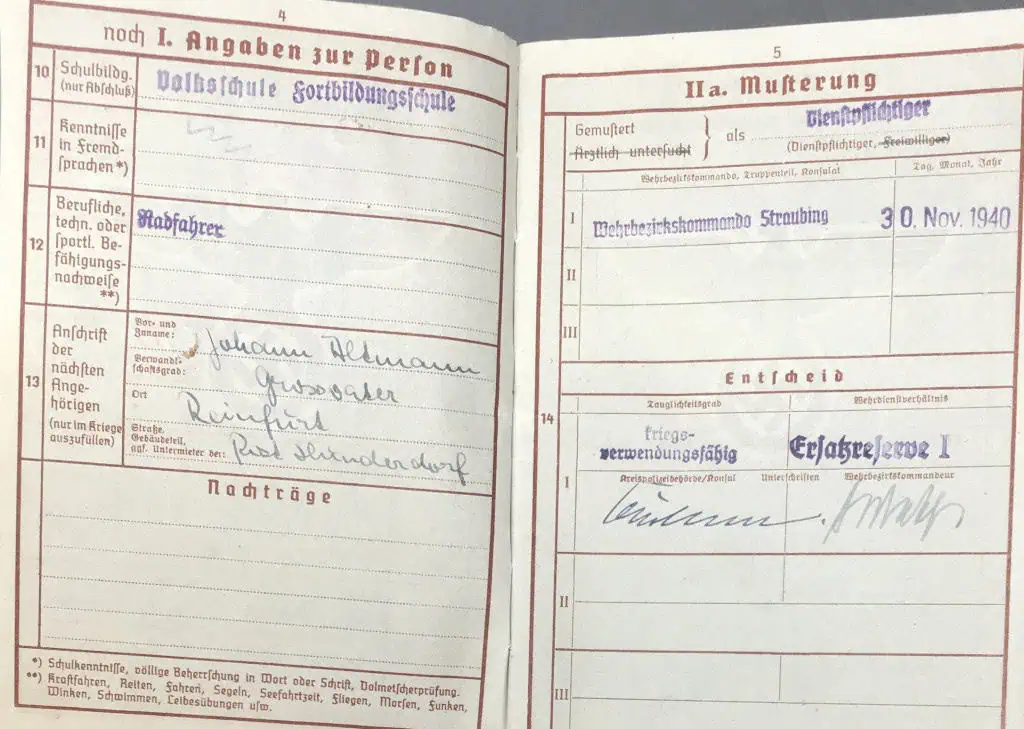 4
noch I. Angaben zur Perſon
10 Schulbildg. (nur Abſchluß)
Volksschule Fortbildungsschule
11 Kenntniſſe in Fremd- ſprachen *)
12 Berufliche, techn. oder ſportl. Be- fähigungs- nachweiſe **)
Radfahrer
13 Anſchrift der nächſten Ange- hörigen (nur im Kriege auszufüllen)
Vor- und Zuname:
Johann Altmann
Verwandt- ſchaftsgrad:
Grossvater
Ort
Reinfurt
Straße, Gebäudeteil, ggf. Untermieter bei:
Post Hunderdorf
Nachträge
*) Schulkenntniſſe, völlige Beherrſchung in Wort oder Schrift, Dolmetſcherprüfung.
**) Kraftfahren, Reiten, Fahren, Segeln, Seefahrtzeit, Fliegen, Morſen, Funken,
Winken, Schwimmen, Leibesübungen uſw.
5
IIa. Muſterung
Gemuſtert
Ärztlich unterſucht
als
Dienſtpflichtiger
(Dienſtpflichtiger, Freiwilliger)
Wehrbezirkskommando, Truppenteil, Konſulat
Tag, Monat, Jahr
I
Wehrbezirkskommando Straubing
30. Nov. 1940
II
III
Entſcheid
14
Tauglichkeitsgrad
Wehrdienſtverhältnis
kriegs-
verwendungsfähig
Erſatzreſerve I
I
Kreispolizeibehörde/Konſul
Unterſchriften
Wehrbezirkskommandeur
II
III